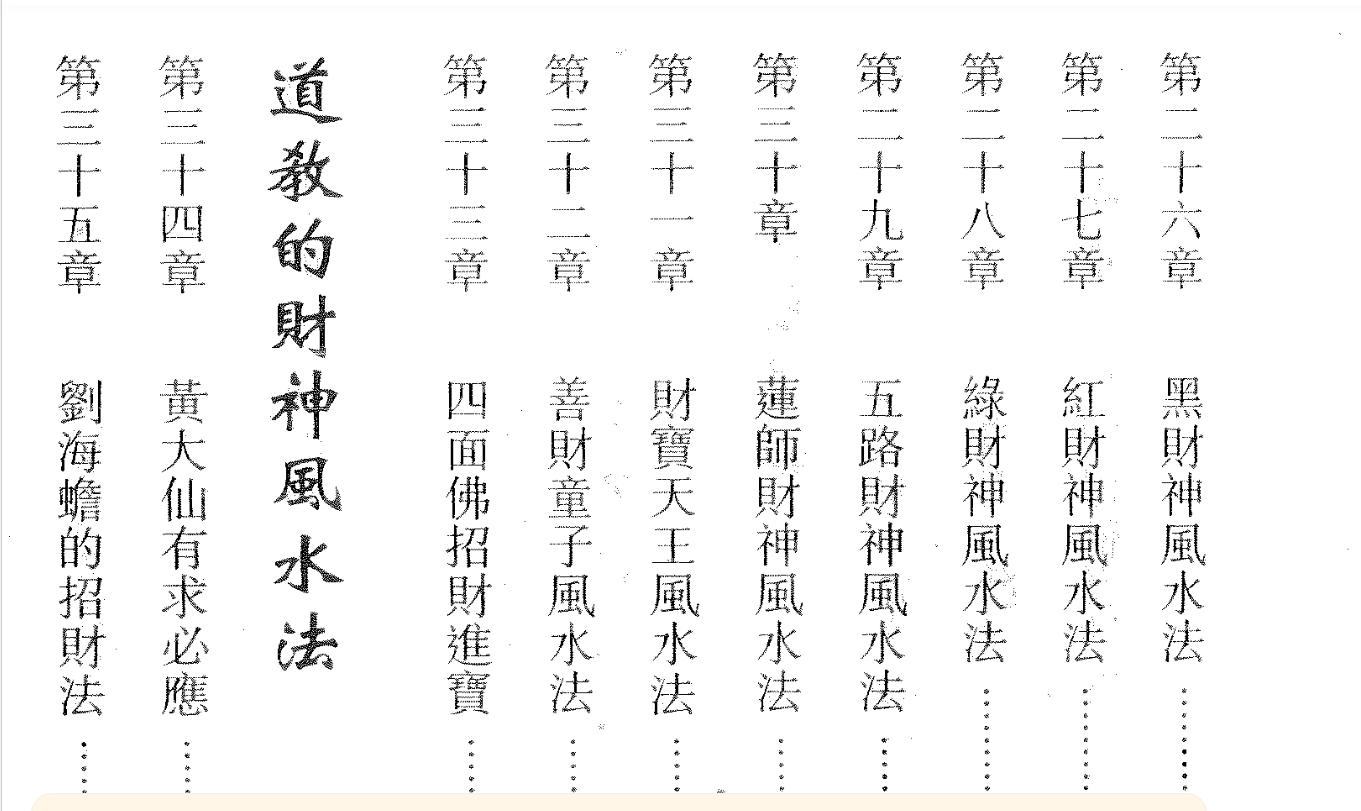 第二十六章　黑財神風水法……
第二十七章　紅財神風水法……
第二十八章　綠財神風水法……
第二十九章　五路財神風水法……
第三十章　蓮師財神風水法……
第三十一章　財寶天王風水法……
第三十二章　善財童子風水法……
第三十三章　四面佛招財進寶……
道教的財神風水法
第三十四章　黃大仙有求必應……
第三十五章　劉海蟾的招財法……